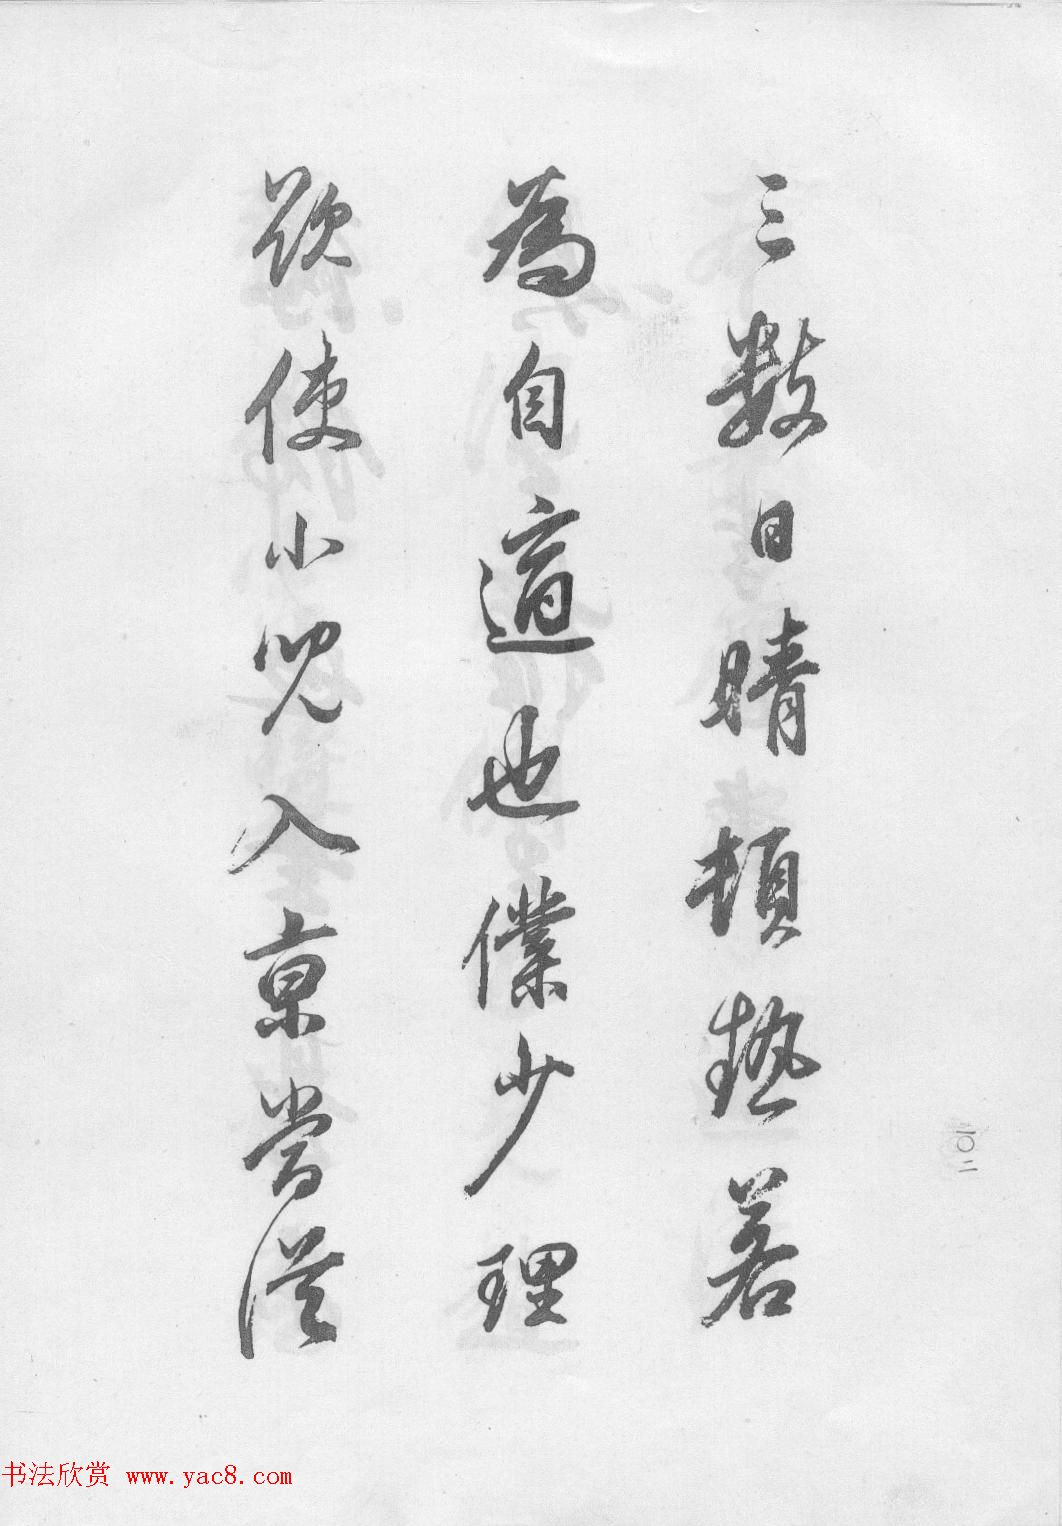 三數日晴頓熱若
為自適也僕少理
欲使小兒入京當從
一〇二
书法欣赏 www.yac8.com